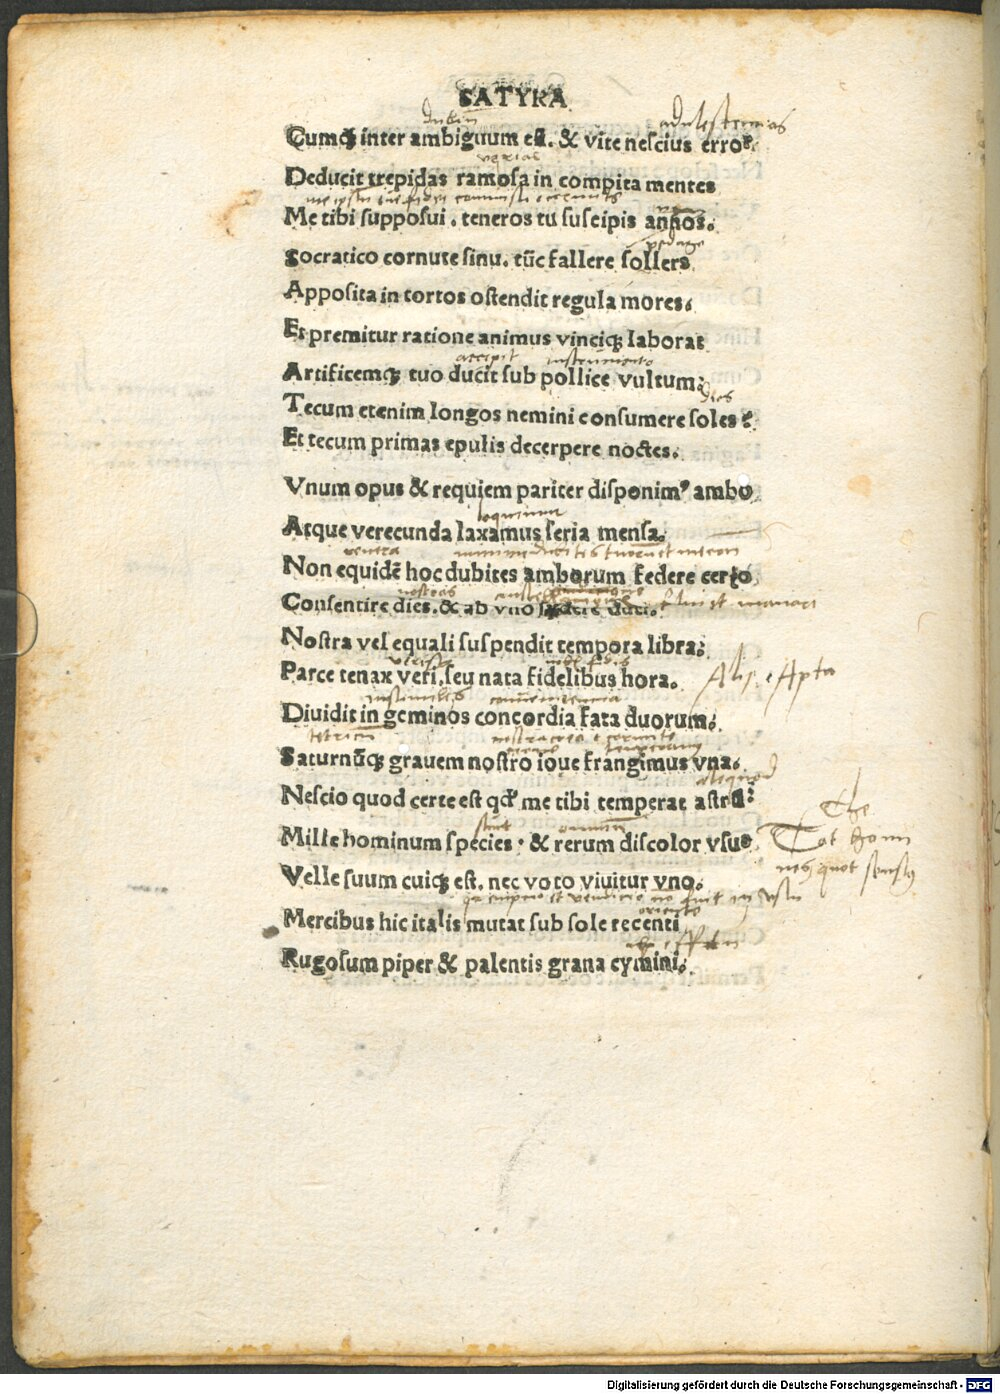 SATYRA
dubiū
adulescencias
Cumq̃ inter ambiguum est. & vite nescius error.
varias
Deducit trepidas ramosa in compita mentes
Me tibi supposui . teneros tu suscipis annos.
Socratico cornute sinu. tūc fallere sollers
Apposita in tortos ostendit regula mores.
Et premitur ratione animus vinciq̃ laborat
accipit instrumento
Artificemq̃ tuo ducit sub pollice vultum:
dies
Tecum etenim longos nemini consumere soles?
Et tecum primas epulis decerpere noctes.
Vnum opus & requiem pariter disponim⁹ ambo
Atque verecunda laxamus seria mensa.
Non equidē hoc dubites amborum federe certo
nostros
Consentire dies. & ab vno sydere duci.
Nostra vel equali suspendit tempora libra:
Parce tenax veri, seu nata fidelibus hora.
Diuidit in geminos concordia fata duorum:
Saturnūq̃ grauem nostro ioue frangimus vna.
aliquod
Nescio quod certe est qd̛ me tibi temperat astrū:
sunt omnium
Mille hominum species · & rerum discolor vsus
Tot homi
nes quot sensus
Velle suum cuiq̃ est. nec voto viuitur vno.
oriento
Mercibus hic italis mutat sub sole recenti
Rugosum piper & palentis grana cymini:
Digitalisierung gefördert durch die Deutsche Forschungsgemeinschaft - DFG